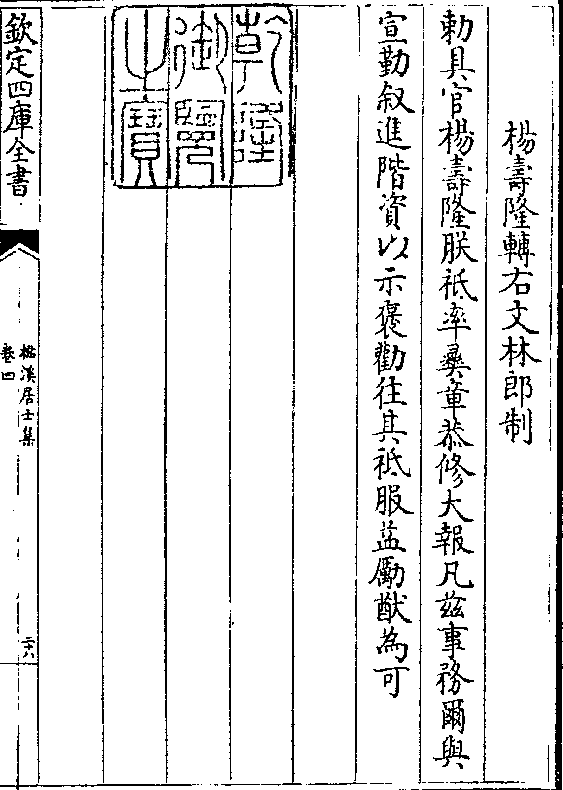 楊壽隆轉右文林郎制
勅具官楊壽隆朕祗率彞章恭修大報凡兹事務爾與
宣勤叙進階資以示褒勸往其祗服益勵猷為可
乾隆
御覽
之寶
欽定四庫全書
卷四
二十八